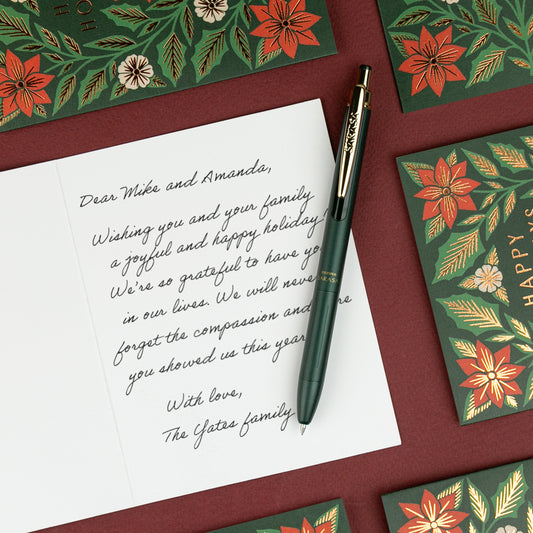 Dear Mike and Amanda,
Wishing you and your family
a joyful and happy holiday!
We're so grateful to have you
in our lives. We will never
forget the compassion and
you showed us this year
With love,
The Yates family
SARASA
HAPPY